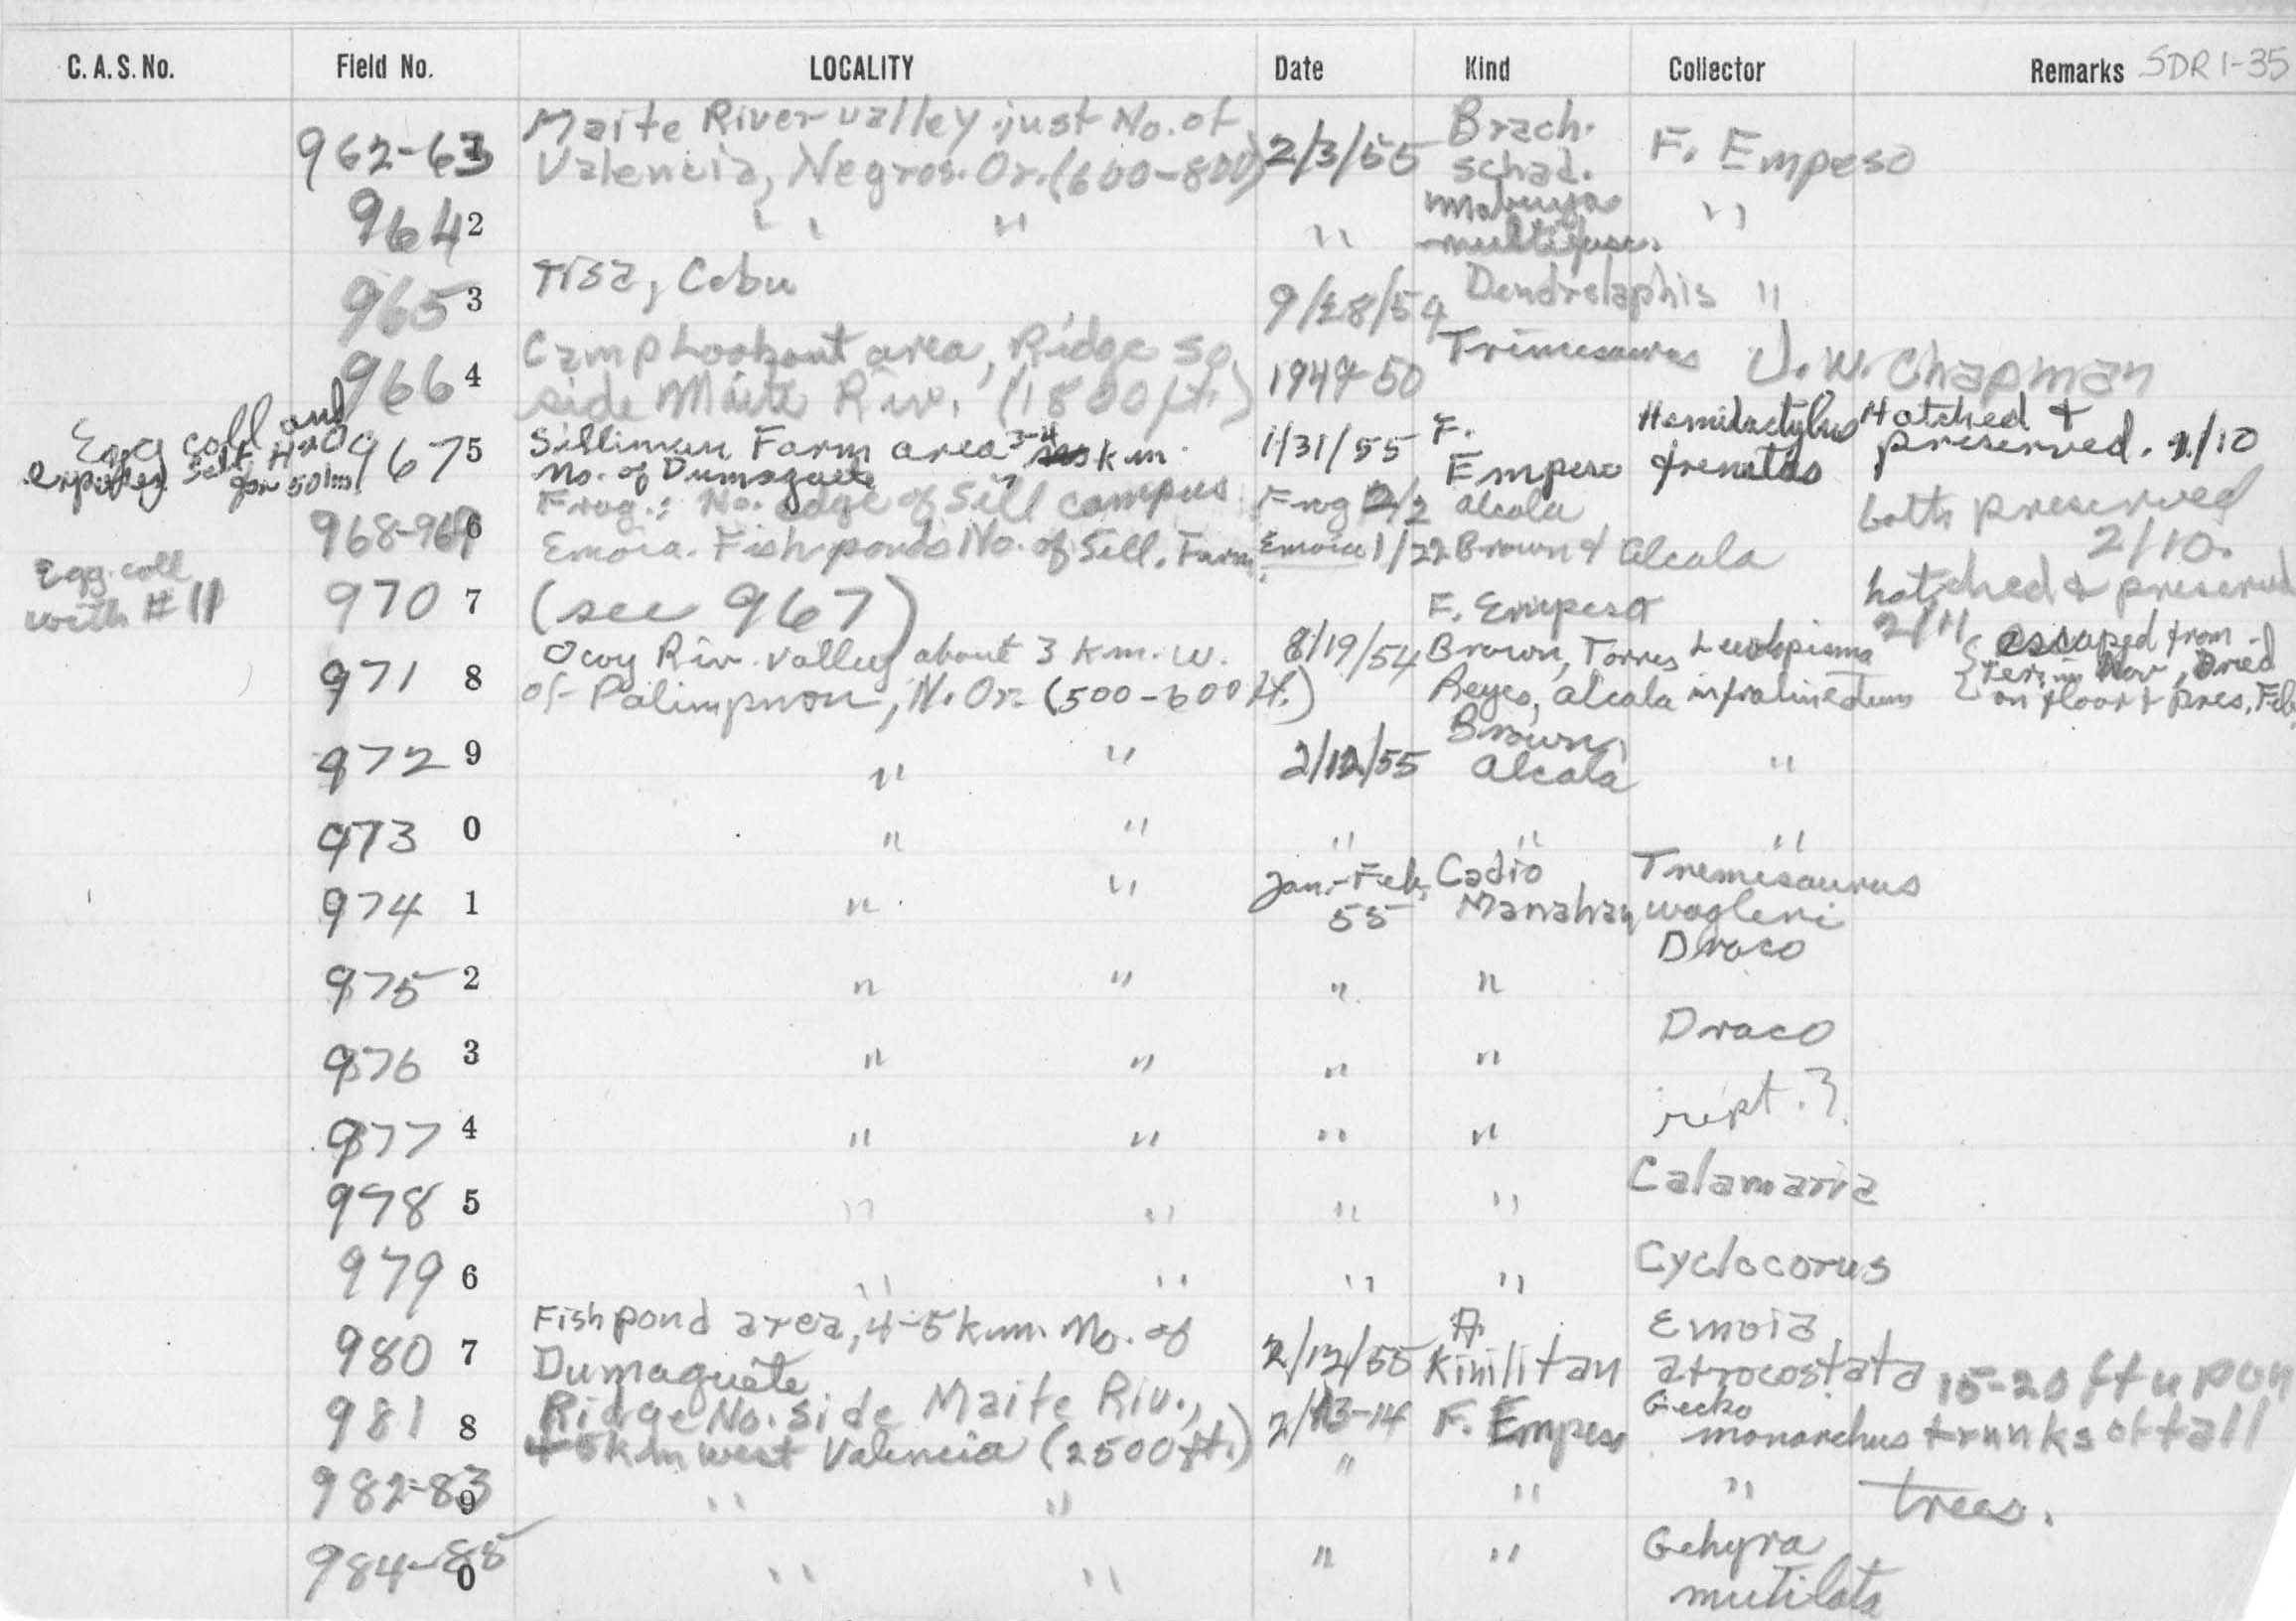 C. A. S. No. Field No. LOCALITY Date Kind Collector Remarks SDR 1-35
962-63 1 Maite River valley just No. of Valencia, Negros. Or. (600-800) 2/3/55 Brach. schad. F. Empeso
964 2 " " " " Mabuya multifasc. "
965 3 Tisa, Cebu 9/28/54 Dendrelaphis "
966 4 Camp Lookout area, Ridge so. side Maite Riv. (1800 ft.) 1949-50 Trimesaurus J. W. Chapman
Egg coll and
967 5 Silliman Farm area 3-4 km. No. of Dumaguete 1/31/55 F. Empeso Hemidactylus frenatus Hatched & preserved. 2/10
salt H2O for 50 hrs
968-969 6 Frog.: No. edge of Sill campus Frog 2/2 Alcala both preserved 2/10.
Emoia. Fish ponds No. of Sill. Farm. Emoia 1/22 Brown & Alcala
Egg. coll with # 11 970 7 (see 967) F. Empeso hatched & preserved 2/11
971 8 Ocoy Riv. Valley about 3 km. w. of Palimpinon, N. Or. (500-600 ft.) 8/19/54 Brown, Torres Reyes, Alcala Leiolopisma infralineolatum { escaped from terr. in Nov, Dried on floor & pres. Feb
972 9 " " 2/12/55 Brown, Alcala "
973 0 " " " " "
974 1 " " Jan.-Feb, 55 Cadio Manahan Tremisaurus wagleri
975 2 " " " " Draco
976 3 " " " " Draco
977 4 " " " " rept. ?
978 5 " " " " Calamaria
979 6 " " " " Cyclocorus
980 7 Fishpond area, 4-5 km. No. of Dumaguete 2/12/55 A. Kinilitan Emoia atrocostata
981 8 Ridge No. side Maite Riv., 4-5 km west Valencia (2500 ft.) 2/13-14 F. Empeso Gecko monarchus 15-20 ft upon trunks of tall trees.
982-83 9 " " " " "
984-85 0 " " " " Gehyra mutilata